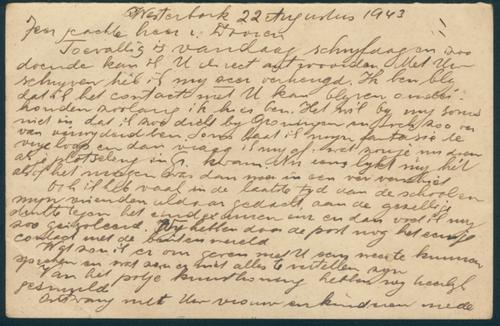 Westerbork 22 Augustus 1943
Zeer geachte heer v. Dooren
Toevallig is vandaag schrijfdag en zoo
doende kan ik U direct antwoorden. Met Uw
schrijven heb ik mij zeer verheugd. Ik ben blij
dat ik het contact met U kan blijven onder-
houden zoolang ik hier ben. Het wil bij mij soms
niet in dat ik zoo dicht bij Groningen en toch zoo ver
van verwijderd ben. Soms laat ik mijn fantasie te
en dan vraag ik mij af, wat zou je nu van
als je plotseling in G. kwam. Nu eens lijkt mij het
alsof het morgen was dan weer in een ver verschiet
Ook ik heb vaak in de laatste tijd aan de school en
mijn vrienden aldaar gedacht, aan de gezellig
tegen het eindexamen en dan voel ik mij
zoo geïsoleerd. Wij hebben door de post nog het eenige
contact met de buitenwereld
Wat zou ik er om geven met U eens weer te kunnen
spreken en wat zou er niet alles te vertellen zijn
Van het potje kunsthoning hebben wij heerlijk
gesmuld
Ontvang met Uw vrouw en kinderen mede